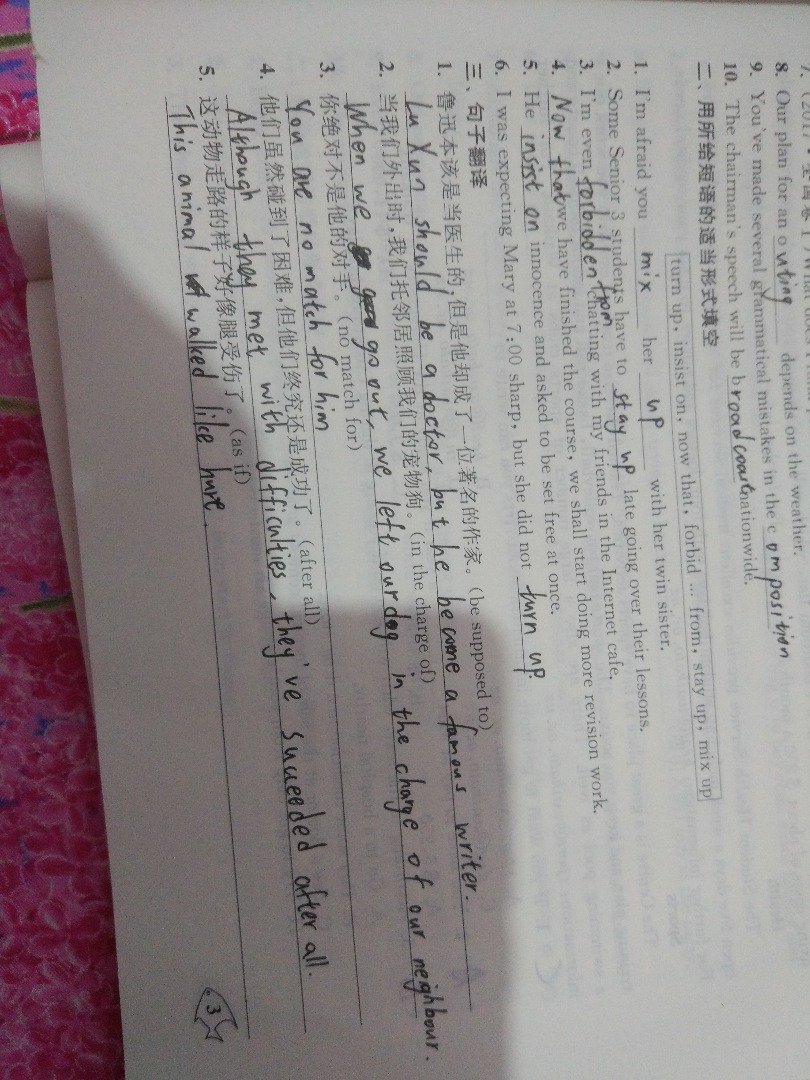 8. Our plan for an outing depends on the weather.
9. You've made several grammatical mistakes in the composition
10. The chairman's speech will be broadcoast nationwide.
二、用所给短语的适当形式填空
turn up, insist on, now that, forbid … from, stay up, mix up
1. I'm afraid you mix her up with her twin sister.
2. Some Senior 3 students have to stay up late going over their lessons.
3. I'm even forbidden from chatting with my friends in the Internet cafe.
4. Now that we have finished the course, we shall start doing more revision work.
5. He insist on innocence and asked to be set free at once.
6. I was expecting Mary at 7:00 sharp, but she did not turn up.
三、句子翻译
1. 鲁迅本该是当医生的,但是他却成了一位著名的作家。(be supposed to)
Lu Xun should be a doctor, but he become a famous writer.
2. 当我们外出时,我们托邻居照顾我们的宠物狗。(in the charge of)
When we go out, we left our dog in the charge of our neighbour.
3. 你绝对不是他的对手。(no match for)
You are no match for him
4. 他们虽然碰到了困难,但他们终究还是成功了。(after all)
Although they met with difficulties, they've succeeded after all.
5. 这动物走路的样子好像腿受伤了。(as if)
This animal walked like hurt.
3